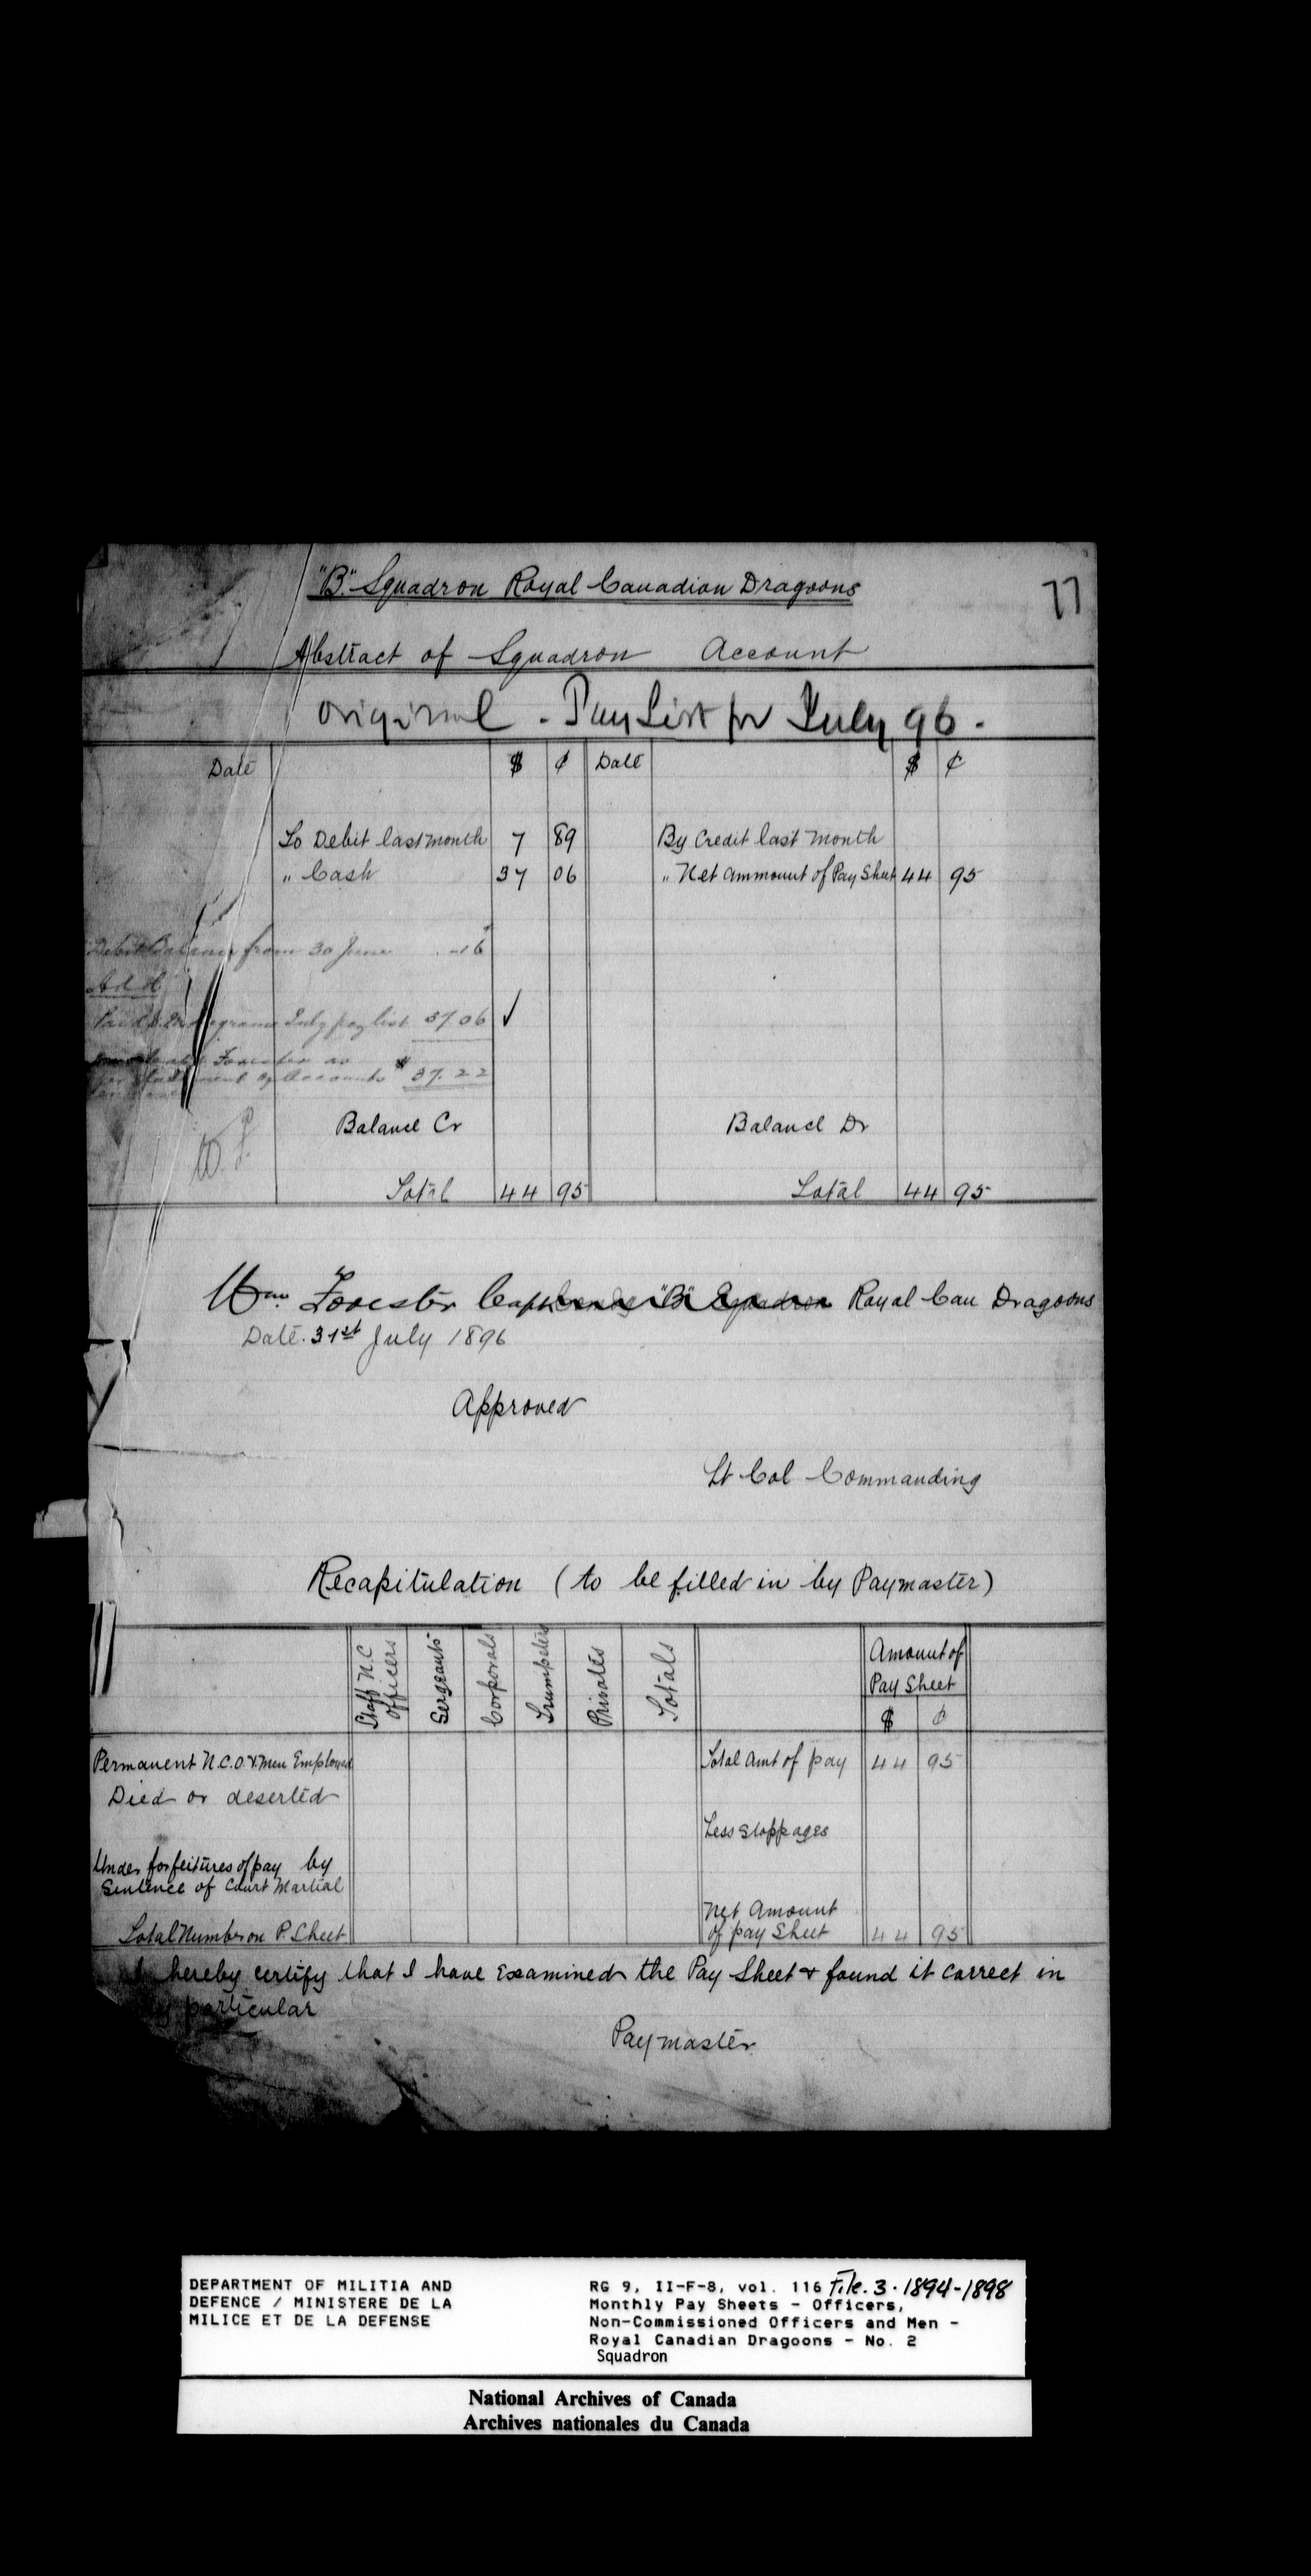 "B." Squadron Royal Canadian Dragoons
77
Abstract of Squadron Account
Original - Pay List for July 96.
Date $ ¢ Date $ ¢
To Debit last month 7 89 By Credit last month
" Cash 37 06 " Net ammount of Pay Sheet 44 95
Debit Balance from 30 June 16
Add
July pay list 37.06 ✓
Forester as
of Accounts $ 37.22
Balance Cr Balance Dr
W.F.
Total 44 95 Total 44 95
Wm. Forester Capt "B" Squadron Royal Can Dragoons
Date. 31st July 1896
Approved
Lt Col Commanding
Recapitulation (to be filled in by Paymaster)
Staff N.C Officers Sergeants Corporals Trumpeters Privates Totals Amount of Pay Sheet
$ ¢
Permanent N.C.O. & Men Employed Total Amt of pay 44 95
Died or deserted
Less Stoppages
Under forfeitures of pay by
Sentence of Court Martial
Net Amount
Total Number on P. Sheet of pay Sheet 44 95
I hereby certify that I have Examined the Pay Sheet & found it correct in
particular
Paymaster
DEPARTMENT OF MILITIA AND
DEFENCE / MINISTERE DE LA
MILICE ET DE LA DEFENSE
RG 9, II-F-8, vol. 116 File. 3. 1894-1898
Monthly Pay Sheets - Officers,
Non-Commissioned Officers and Men -
Royal Canadian Dragoons - No. 2
Squadron
National Archives of Canada
Archives nationales du Canada